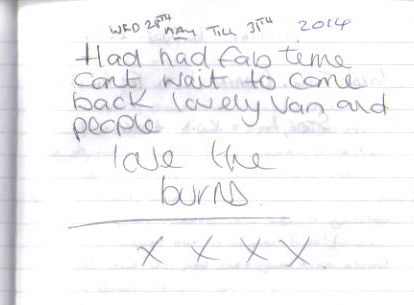 WED 28TH MAY TILL 31TH 2014
Had had fab teme
cant wait to come
back lovely van and
people
love the
burns.
X X X X.